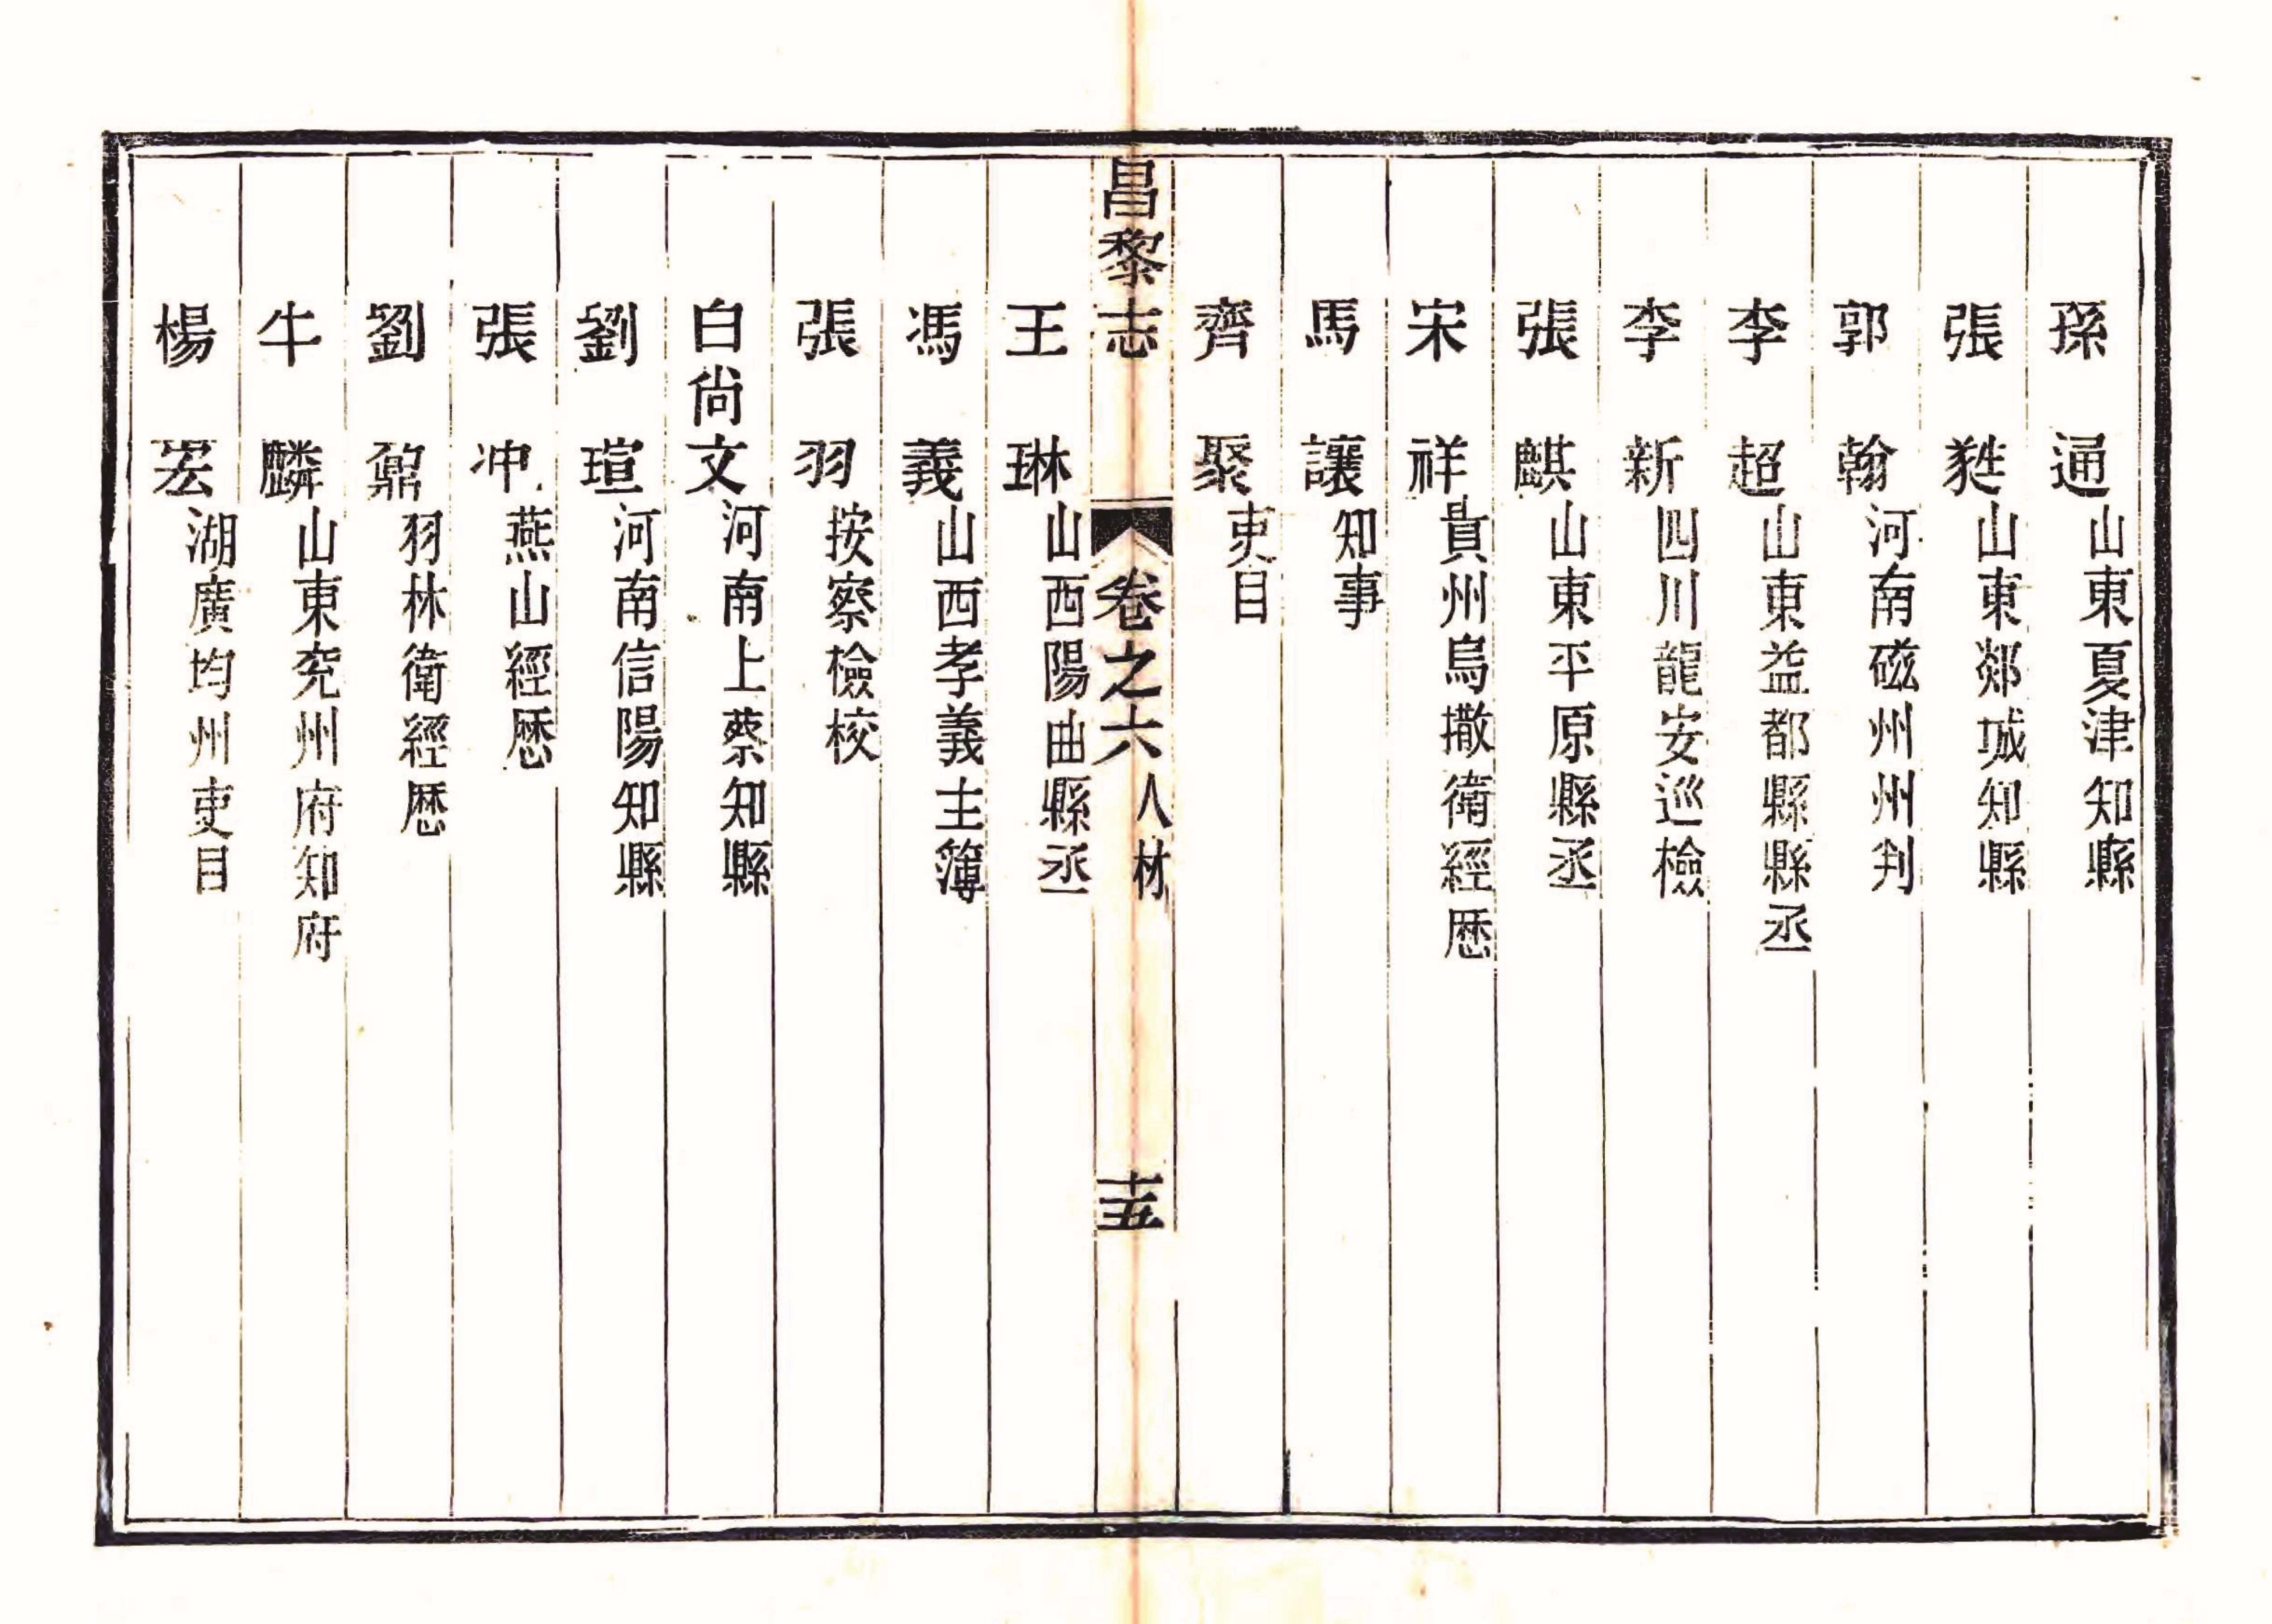 孫　通山東夏津知縣
張　甡山東郯城知縣
郭　翰河南磁州州判
李　超山東益都縣縣丞
李　新四川龍安巡檢
張　麒山東平原縣丞
宋　祥貴州烏撒衛經歷
馬　讓知事
齊　聚吏目
昌黎志　卷之六人材　十五
王　琳山西陽曲縣丞
馮　義山西孝義主簿
張　羽按察檢校
白尚文河南上蔡知縣
劉　瑄河南信陽知縣
張　冲燕山經歷
劉　鼐羽林衛經歷
牛　麟山東兖州府知府
楊　宏湖廣均州吏目